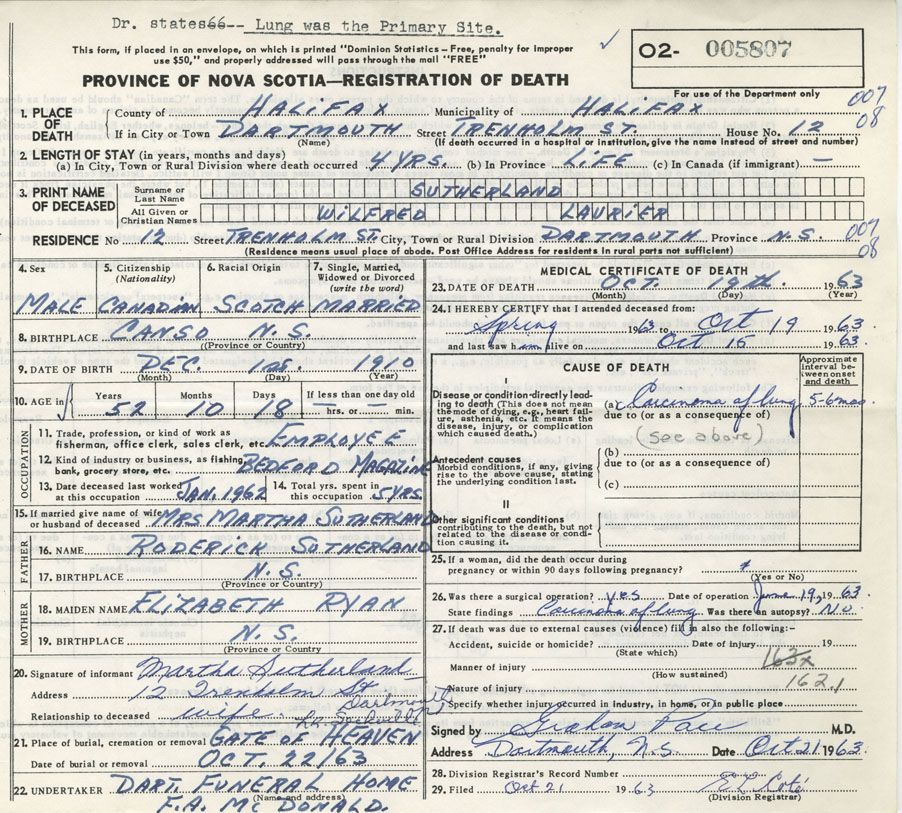 Dr. states66-- Lung was the Primary Site.
This form, if placed in an envelope, on which is printed "Dominion Statistics – Free, penalty for improper
use $50," and properly addressed will pass through the mail "FREE"
✓
O2- 005807
For use of the Department only
PROVINCE OF NOVA SCOTIA—REGISTRATION OF DEATH
007
08
1. PLACE OF DEATH
County of HALIFAX Municipality of HALIFAX
If in City or Town DARTMOUTH Street TRENHOLM ST. House No. 12
(Name) (If death occurred in a hospital or institution, give the name instead of street and number)
2. LENGTH OF STAY (in years, months and days)
(a) In City, Town or Rural Division where death occurred 4 YRS. (b) In Province LIFE (c) In Canada (if immigrant) —
3. PRINT NAME OF DECEASED
Surname or Last Name SUTHERLAND
All Given or Christian Names WILFRED LAURIER
RESIDENCE No 12 Street TRENHOLM ST. City, Town or Rural Division DARTMOUTH Province N.S.
007
08
(Residence means usual place of abode. Post Office Address for residents in rural parts not sufficient)
4. Sex
MALE
5. Citizenship (Nationality)
CANADIAN
6. Racial Origin
SCOTCH
7. Single, Married, Widowed or Divorced (write the word)
MARRIED
8. BIRTHPLACE CANSO N.S.
(Province or Country)
9. DATE OF BIRTH DEC. 1st. 1910
(Month) (Day) (Year)
10. AGE in Years Months Days If less than one day old
52 10 18 — hrs. or — min.
OCCUPATION
11. Trade, profession, or kind of work as
fisherman, office clerk, sales clerk, etc. EMPLOYEE
12. Kind of industry or business, as fishing,
bank, grocery store, etc. BEDFORD MAGAZINE
13. Date deceased last worked at this occupation JAN. 1962
14. Total yrs. spent in this occupation 5 YRS.
15. If married give name of wife
or husband of deceased MRS MARTHA SUTHERLAND
FATHER
16. NAME RODERICK SUTHERLAND
17. BIRTHPLACE N.S.
(Province or Country)
MOTHER
18. MAIDEN NAME ELIZABETH RYAN
19. BIRTHPLACE N.S.
(Province or Country)
20. Signature of informant Martha Sutherland
Address 12 Trenholm St. Dartmouth
Relationship to deceased wife.
21. Place of burial, cremation or removal GATE OF HEAVEN
Date of burial or removal OCT. 22/63
22. UNDERTAKER DART. FUNERAL HOME
(Name and address)
F.A. MC DONALD.
MEDICAL CERTIFICATE OF DEATH
23. DATE OF DEATH OCT. 19th. 1963
(Month) (Day) (Year)
24. I HEREBY CERTIFY that I attended deceased from:
Spring 1963 to Oct 19 1963
and last saw him alive on Oct 15 1963.
CAUSE OF DEATH
Approximate interval between onset and death
I
Disease or condition directly leading to death (This does not mean
the mode of dying, e.g., heart failure, asthenia, etc. It means the
disease, injury, or complication
which caused death.)
(a) Carcinoma of lung 5-6 mos
due to (or as a consequence of)
(see above)
Antecedent causes
Morbid conditions, if any, giving
rise to the above cause, stating
the underlying condition last.
(b)
due to (or as a consequence of)
(c)
II
Other significant conditions
contributing to the death, but not
related to the disease or condition causing it.
25. If a woman, did the death occur during
pregnancy or within 90 days following pregnancy?
(Yes or No)
26. Was there surgical operation? yes Date of operation June 19, 1963.
State findings Carcinoma of lung Was there an autopsy? No
27. If death was due to external causes (violence) fill in also the following:–
Accident, suicide or homicide? Date of injury 19
(State which)
163x
Manner of injury
(How sustained)
162.1
Nature of injury
Specify whether injury occurred in industry, in home, or in public place
Signed by M.D.
Address Dartmouth, N.S. Date Oct 21 1963.
28. Division Registrar's Record Number
29. Filed Oct 21 1963
(Division Registrar)